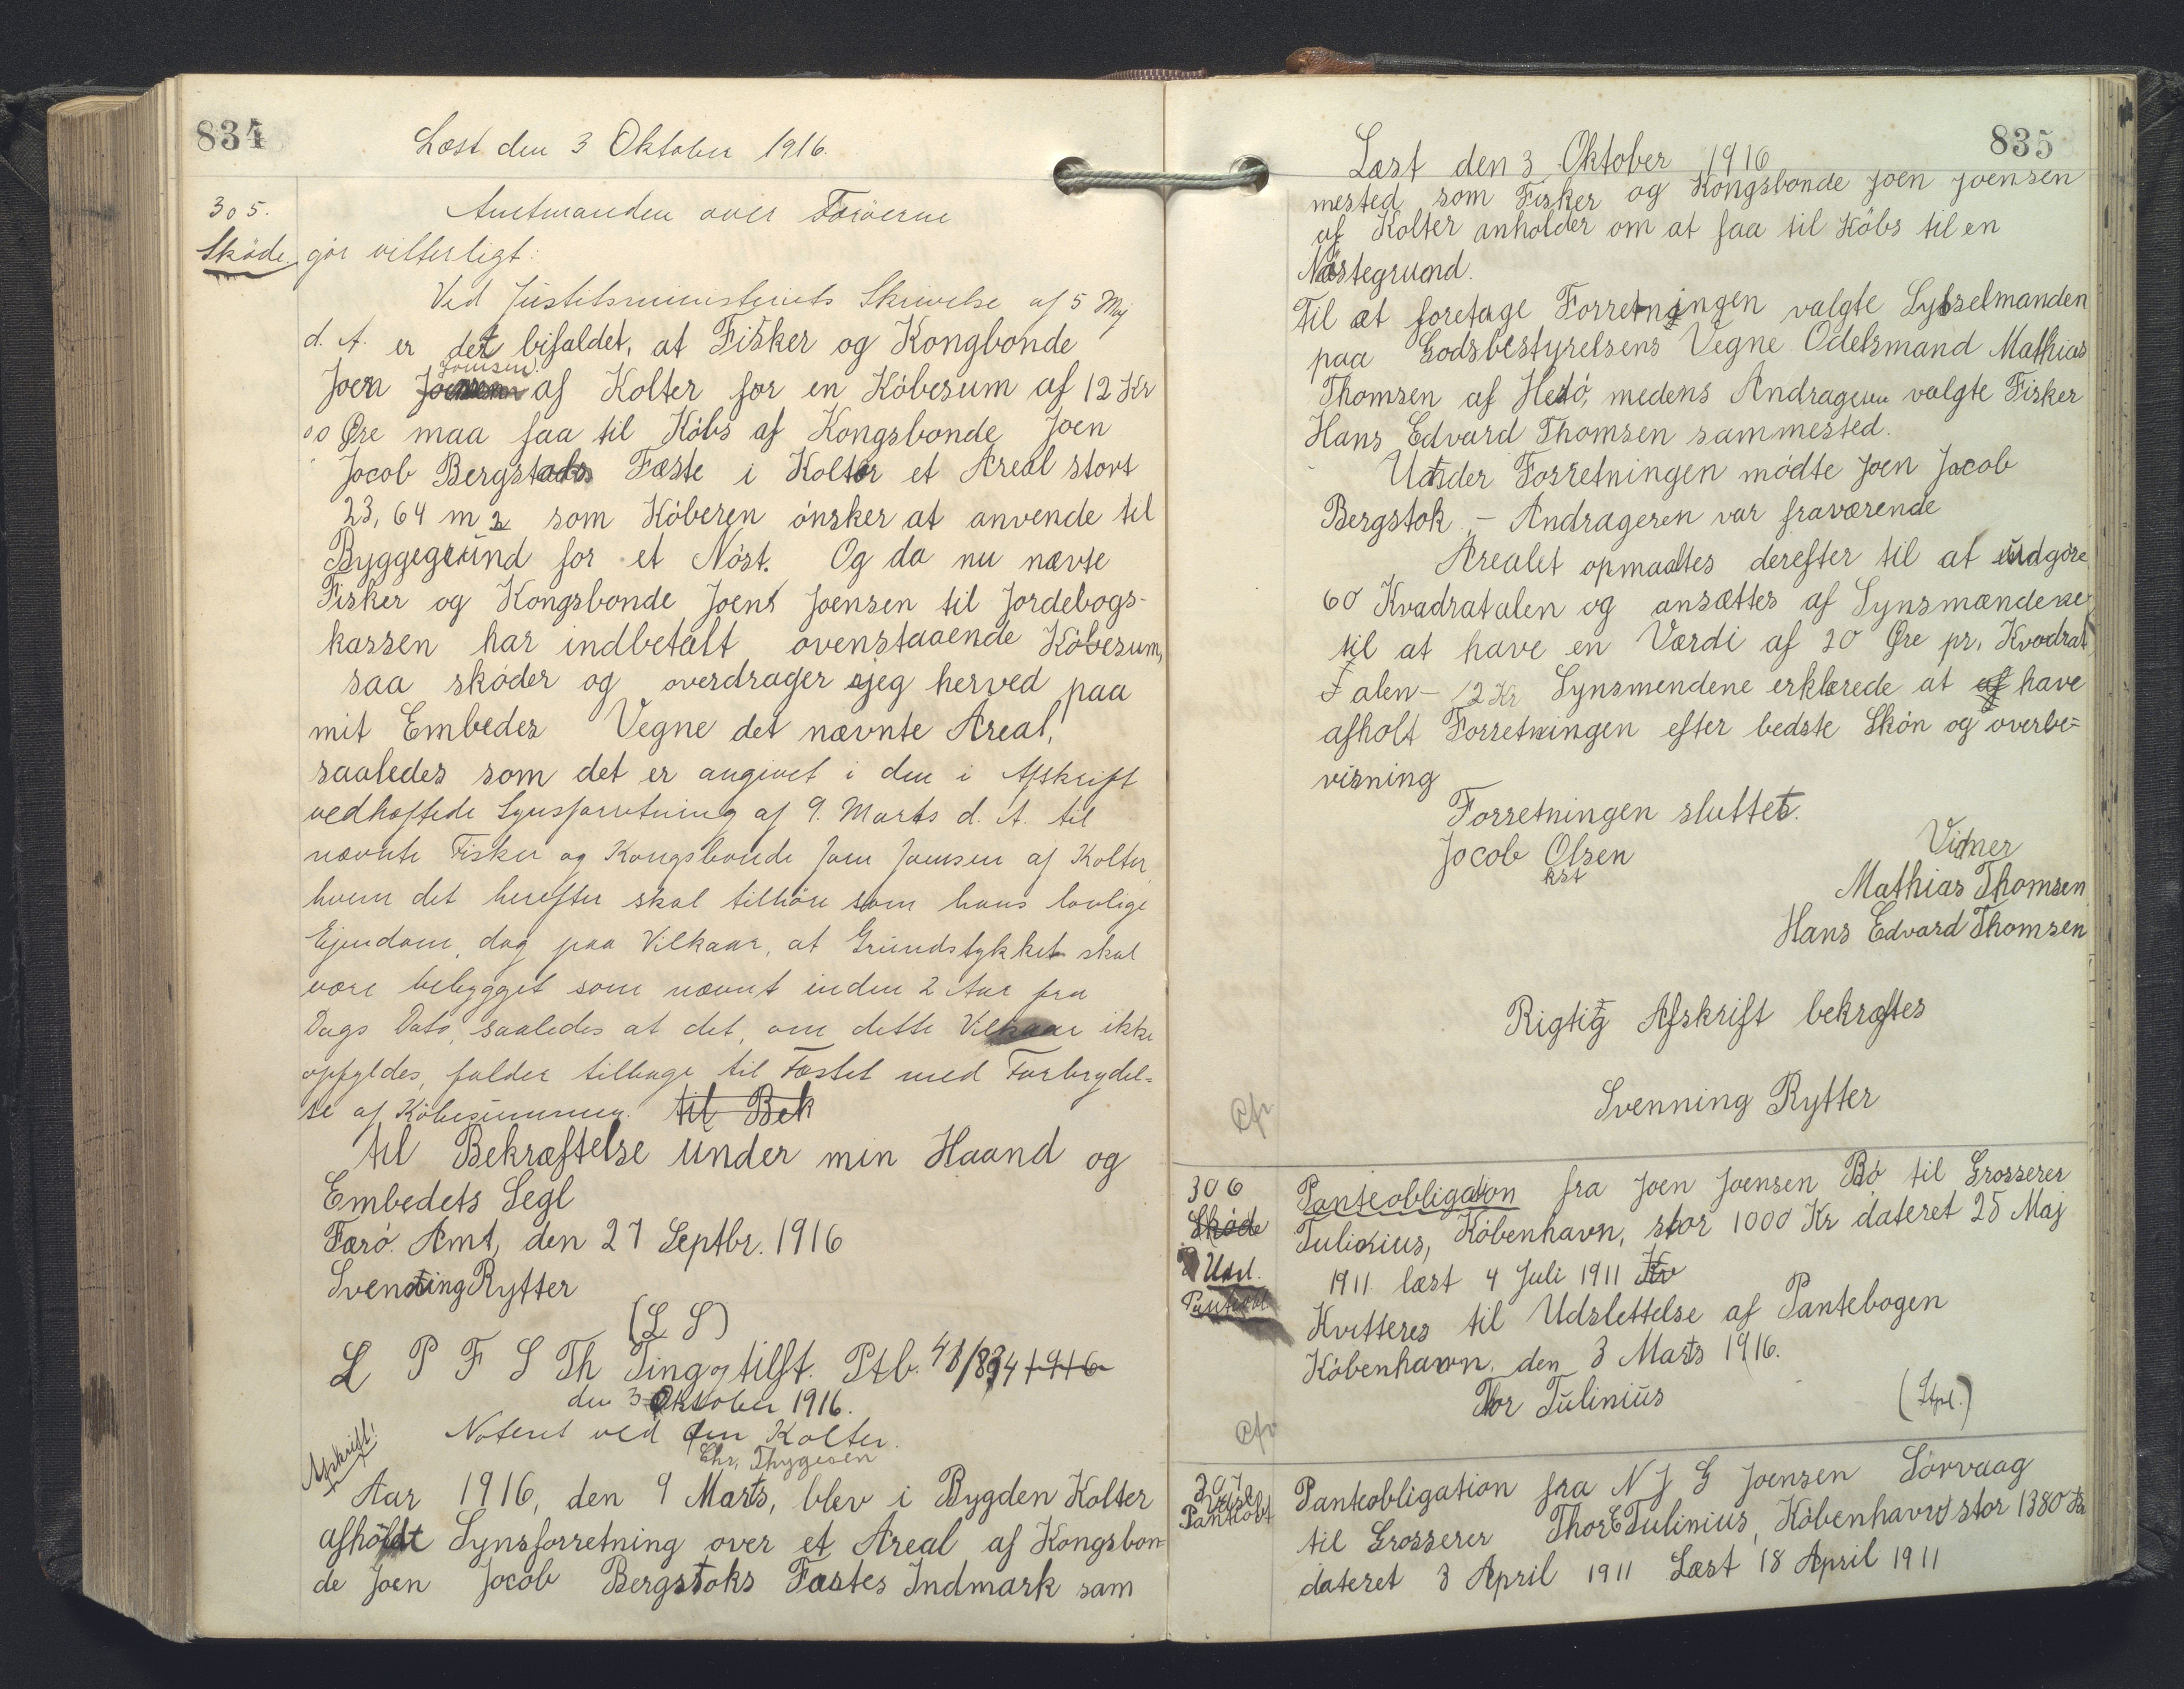 834
Læst den 3 Oktober 1916.
305.
Skøde.
Amtmanden over Færøerne
gör vitterligt:
Ved Justitsministeriets Skrivelse af 5 Maj
d. A. er det bifaldet, at Fisker og Kongbonde
Joensen
Joen Joensen af Kolter for en Köbesum af 12 Kr
00 Øre maa faa til Köbs af Kongsbonde Joen
Jocob Bergstoks Fæste i Kolter et Areal stort
23,64 m2 som Köberen önsker at anvende til
Byggegrund for et Nöst. Og da nu nævte
Fisker og Kongsbonde Joens Joensen til Jordebogs-
kassen har indbetalt ovenstaaende Köbesum,
saa sköder og overdrager jeg herved paa
mit Embedes Vegne det nævnte Areal,
saaledes som det er angivet i den i Afskrift
vedhæftede Synsforretning af 9. Marts d. A. til
nævnte Fisker og Kongsbonde Joen Joensen af Kolter,
hvem det herefter skal tilhöre som hans lovlige
Ejendom, dog paa Vilkaar, at Grundstykket skal
være bebygget som nævnt inden 2 Aar fra
Dags Dato, saaledes at det, om dette Vilkaar ikke
opfyldes, falder tilbage til Fæstet med Forbrydel-
se af Köbesummen. til Bek
til Bekræftelse under min Haand og
Embedets Segl
Færö Amt, den 27 Septbr. 1916
Svenning Rytter
(L S)
L P F S Th Ting og tilst. Ptb. 48/834 1916
den 3 Oktober 1916.
Noteret ved Kolter.
Chr. Thygesen
Afskrift!
Aar 1916, den 9 Marts, blev i Bygden Kolter
afholdt Synsforretning over et Areal af Kongsbon-
de Joen Jocob Bergstoks Fæstes Indmark sam
835
Læst den 3 Oktober 1916
mested som Fisker og Kongsbonde Joen Joensen
af Kolter anholder om at faa til Köbs til en
Nöstegrund.
Til at foretage Forretningen valgte Sysselmanden
paa Godsbestyrelsens Vegne Odelsmand Mathias
Thomsen af Hestö, medens Andrageren valgte Fisker
Hans Edvard Thomsen sammested.
Under Forretningen mödte Joen Jacob
Bergstok, - Andrageren var fraværende
Arealet opmaaltes derefter til at udgöre
60 Kvadratalen og ansættes af Synsmændene
til at have en Værdi af 20 Øre pr. Kvadrat
alen - 12 Kr Synsmendene erklærede at af have
afholt Forretningen efter bedste Skön og overbe-
visning
Forretningen sluttet.
Jocob Olsen
kst
Vidner
Mathias Thomsen
Hans Edvard Thomsen
Rigtig Afskrift bekræftes
Svenning Rytter
Cfr
306
Skøde
Udsl.
Panteobl.
Panteobligation fra Joen Joensen Bö til Grosserer
Tulinius, Köbenhavn, stor 1000 Kr dateret 25 Maj
1911 læst 4 Juli 1911 Kv
Kvitteres til Udslettelse af Pantebogen
Köbenhavn, den 3 Marts 1916.
Thor Tulinius
(Stpl.)
Cfr
307
Udsl.
Panteobl
Panteobligation fra N J G Joensen Sörvaag
til Grosserer Thor E Tulinius, Köbenhavn stor 1380 Kr
dateret 3 April 1911 Læst 18 April 1911